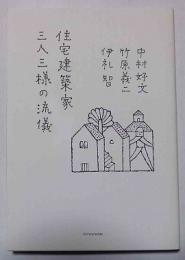 中村好文
竹原義二
伊礼智
住宅建築家
三人三様の流儀